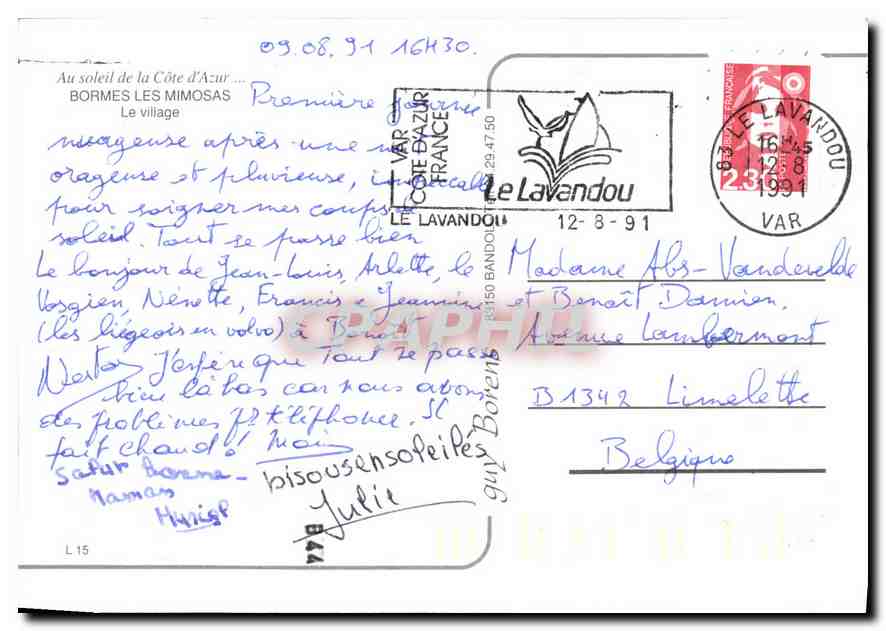 09.08.91 16H30.
Au soleil de la Côte d'Azur ...
BORMES LES MIMOSAS
Le village
Première journée
nuageuse après une
orageuse et pluvieuse,
pour soigner mes coups
soleil. Tout se passe bien
Le bonjour de Jean-Louis, Arlette, le
Vosgien, Nénette, Francis e Jeannine
(les liégeois en volvo) à Benoît
Nestor J'espère que Tout se passe
bien là bas car nous avons
des problèmes pr téléphoner. Il
fait chaud!
Salut bonne-
maman
Muriel
bisousensoleilés
Julie
L 15
B44
VAR
CÔTE D'AZUR
FRANCE
Le Lavandou
LE LAVANDOU 12-8-91
83150 BANDOL 29.47.50
guy Borens
RÉPUBLIQUE FRANÇAISE
2.3
83 LE LAVANDOU
16H45
12-8
1991
VAR
Madame Abs-Vandevelde
et Benoît Damien.
Avenue Lambermont
B1342 Limelette
Belgique
CRAPHIL